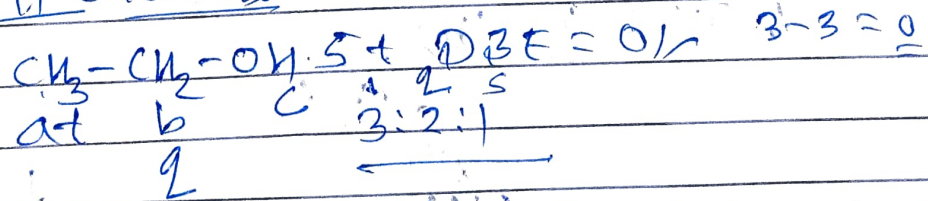 CH3-CH2-OH. S t DBE = 0 3-3 = 0
at b c q s
q 3:2:1